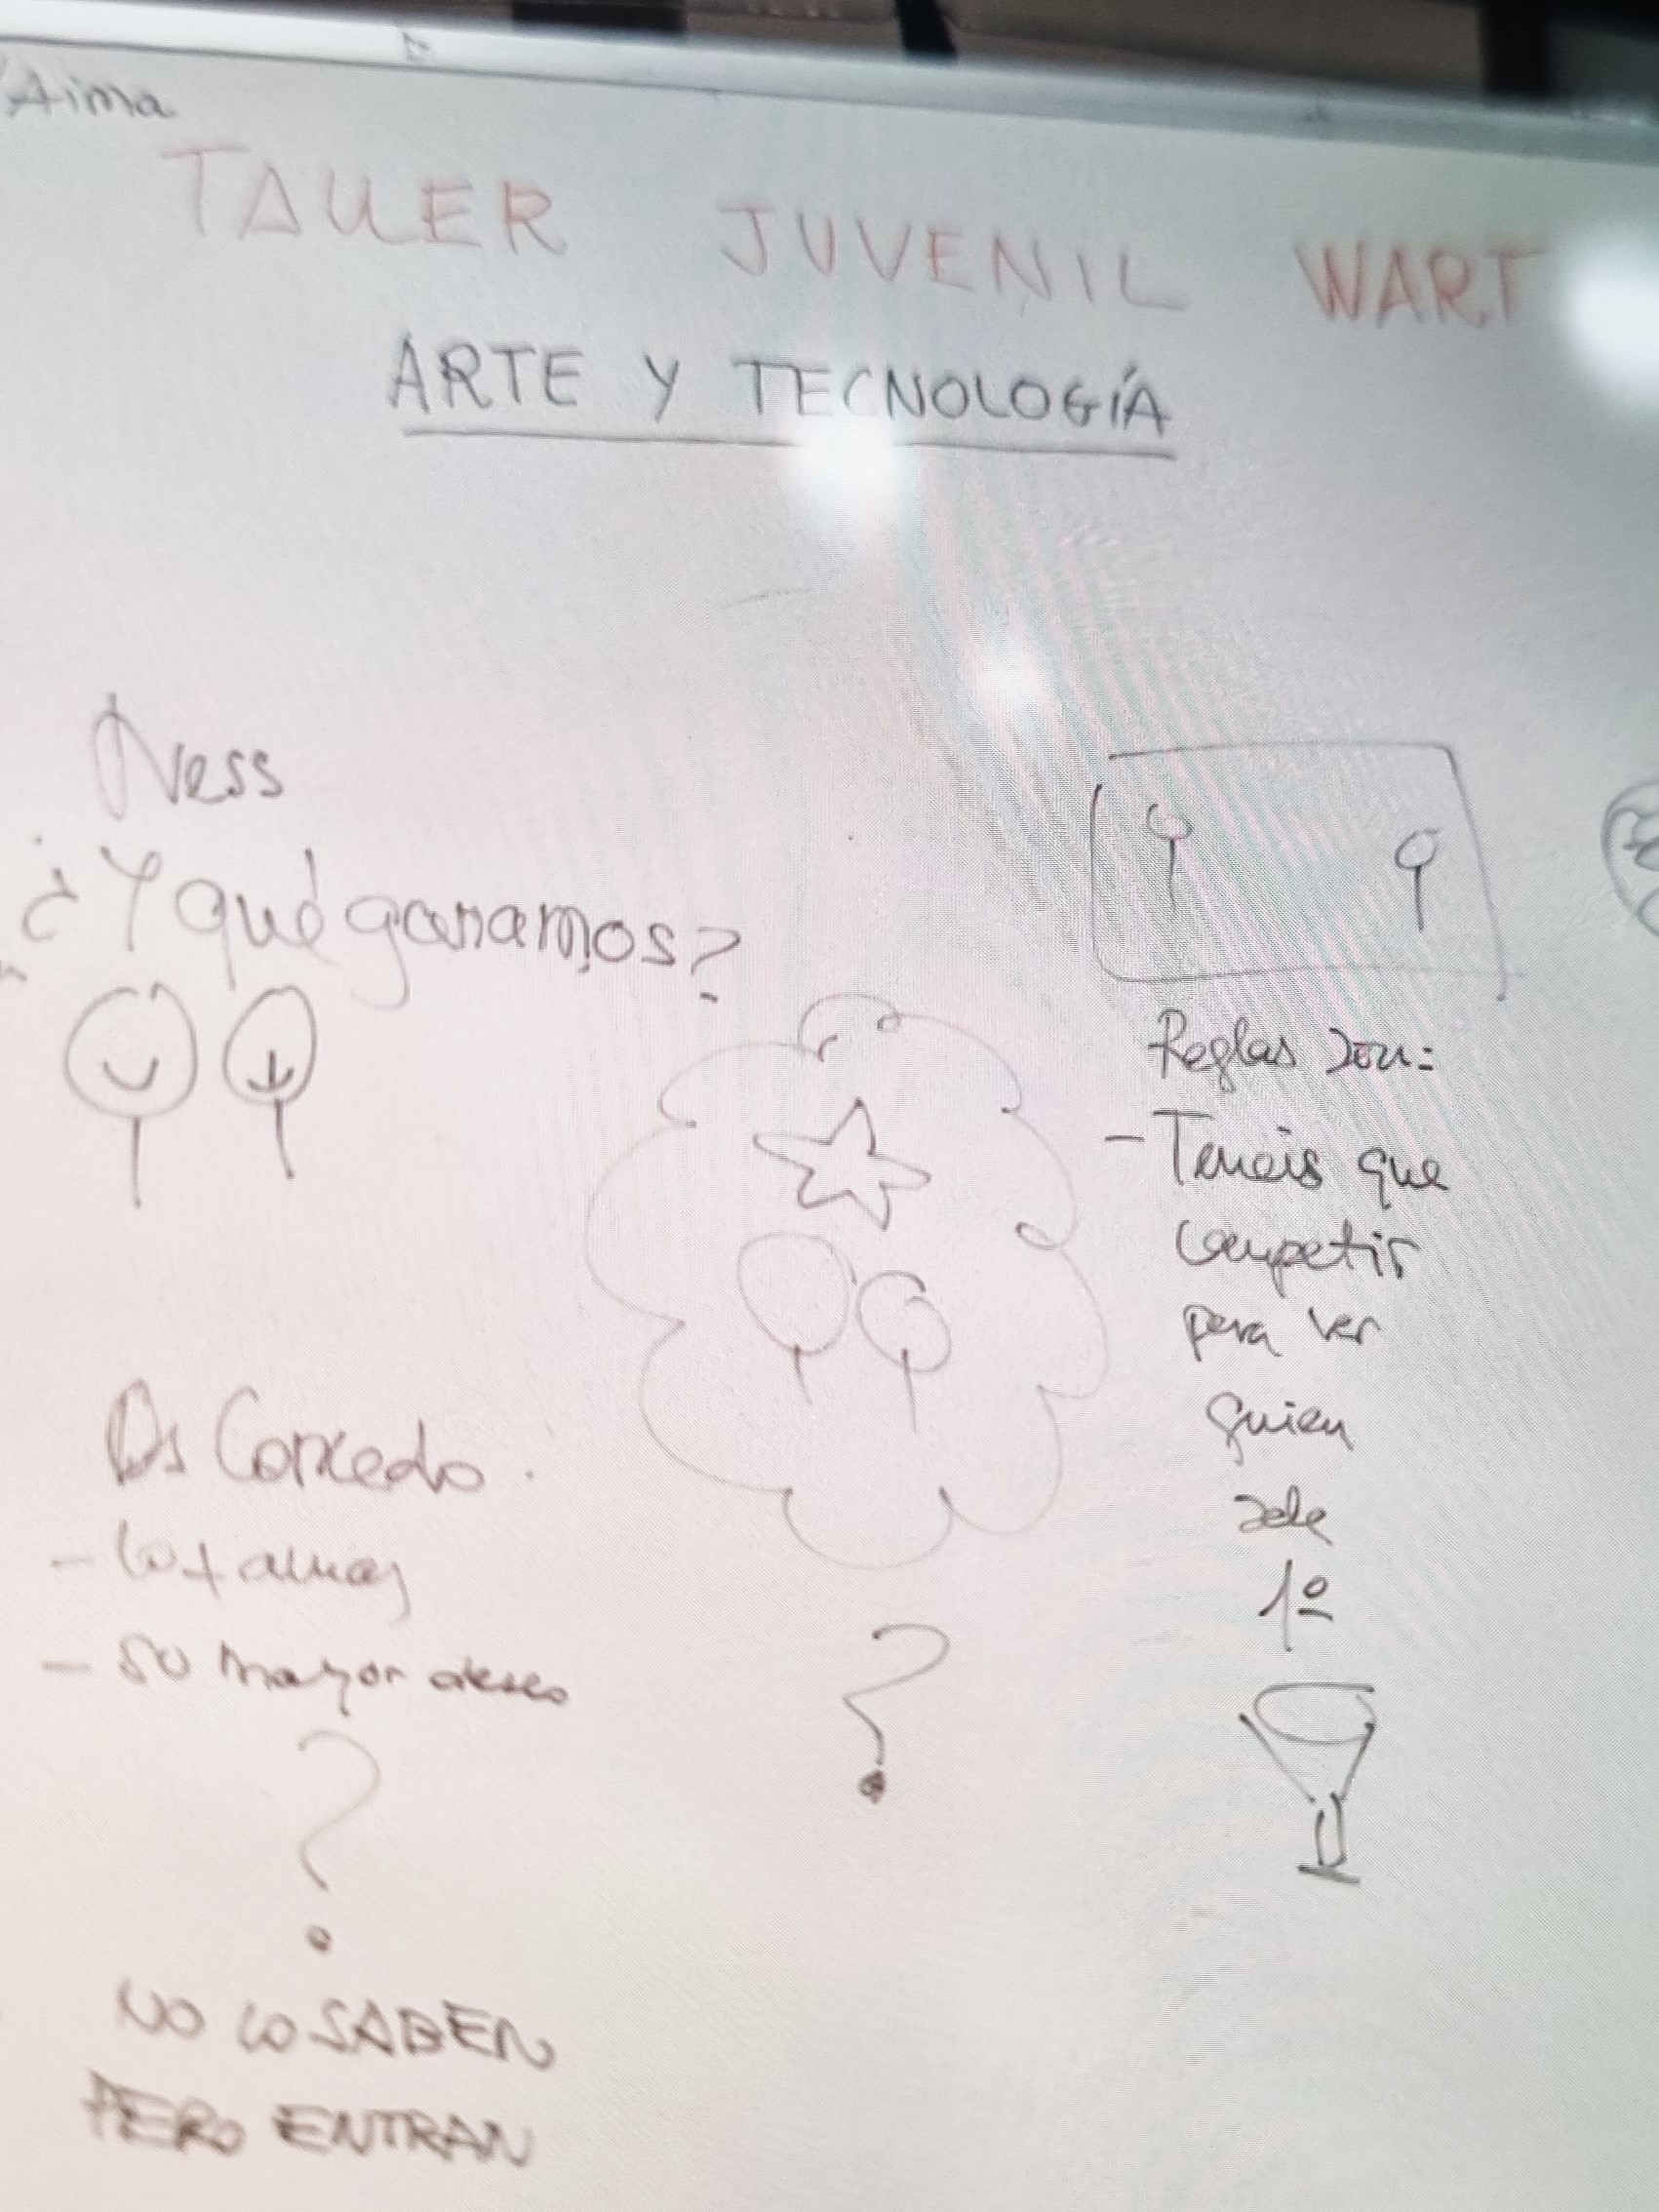 Aima
TALLER JUVENIL WART
ARTE Y TECNOLOGÍA
Ness
¿Y qué ganamos?
Reglas son:
- Teneis que
competir
para ver
quien
sale
1º
Os Concedo
-
- su mayor deseo
?
?
NO LO SABEN
PERO ENTRAN